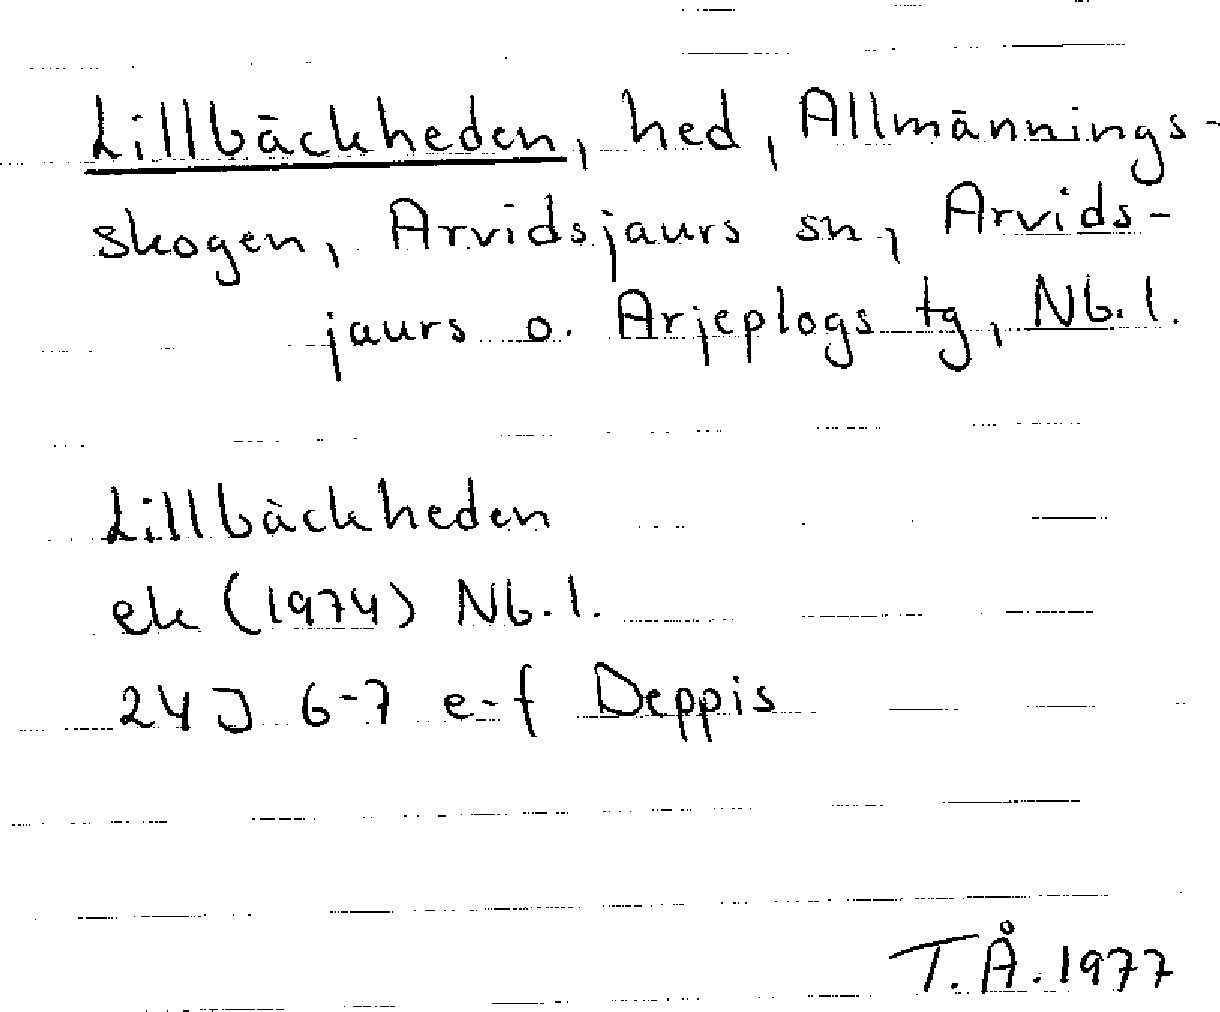 Lillbäckheden, hed, Allmännings-
skogen, Arvidsjaurs sn, Arvids-
jaurs o. Arjeplogs tg, Nb.l.
Lillbäckheden
ek (1974) Nb.l.
24J 6-7 e-f Deppis
T.Å.1977